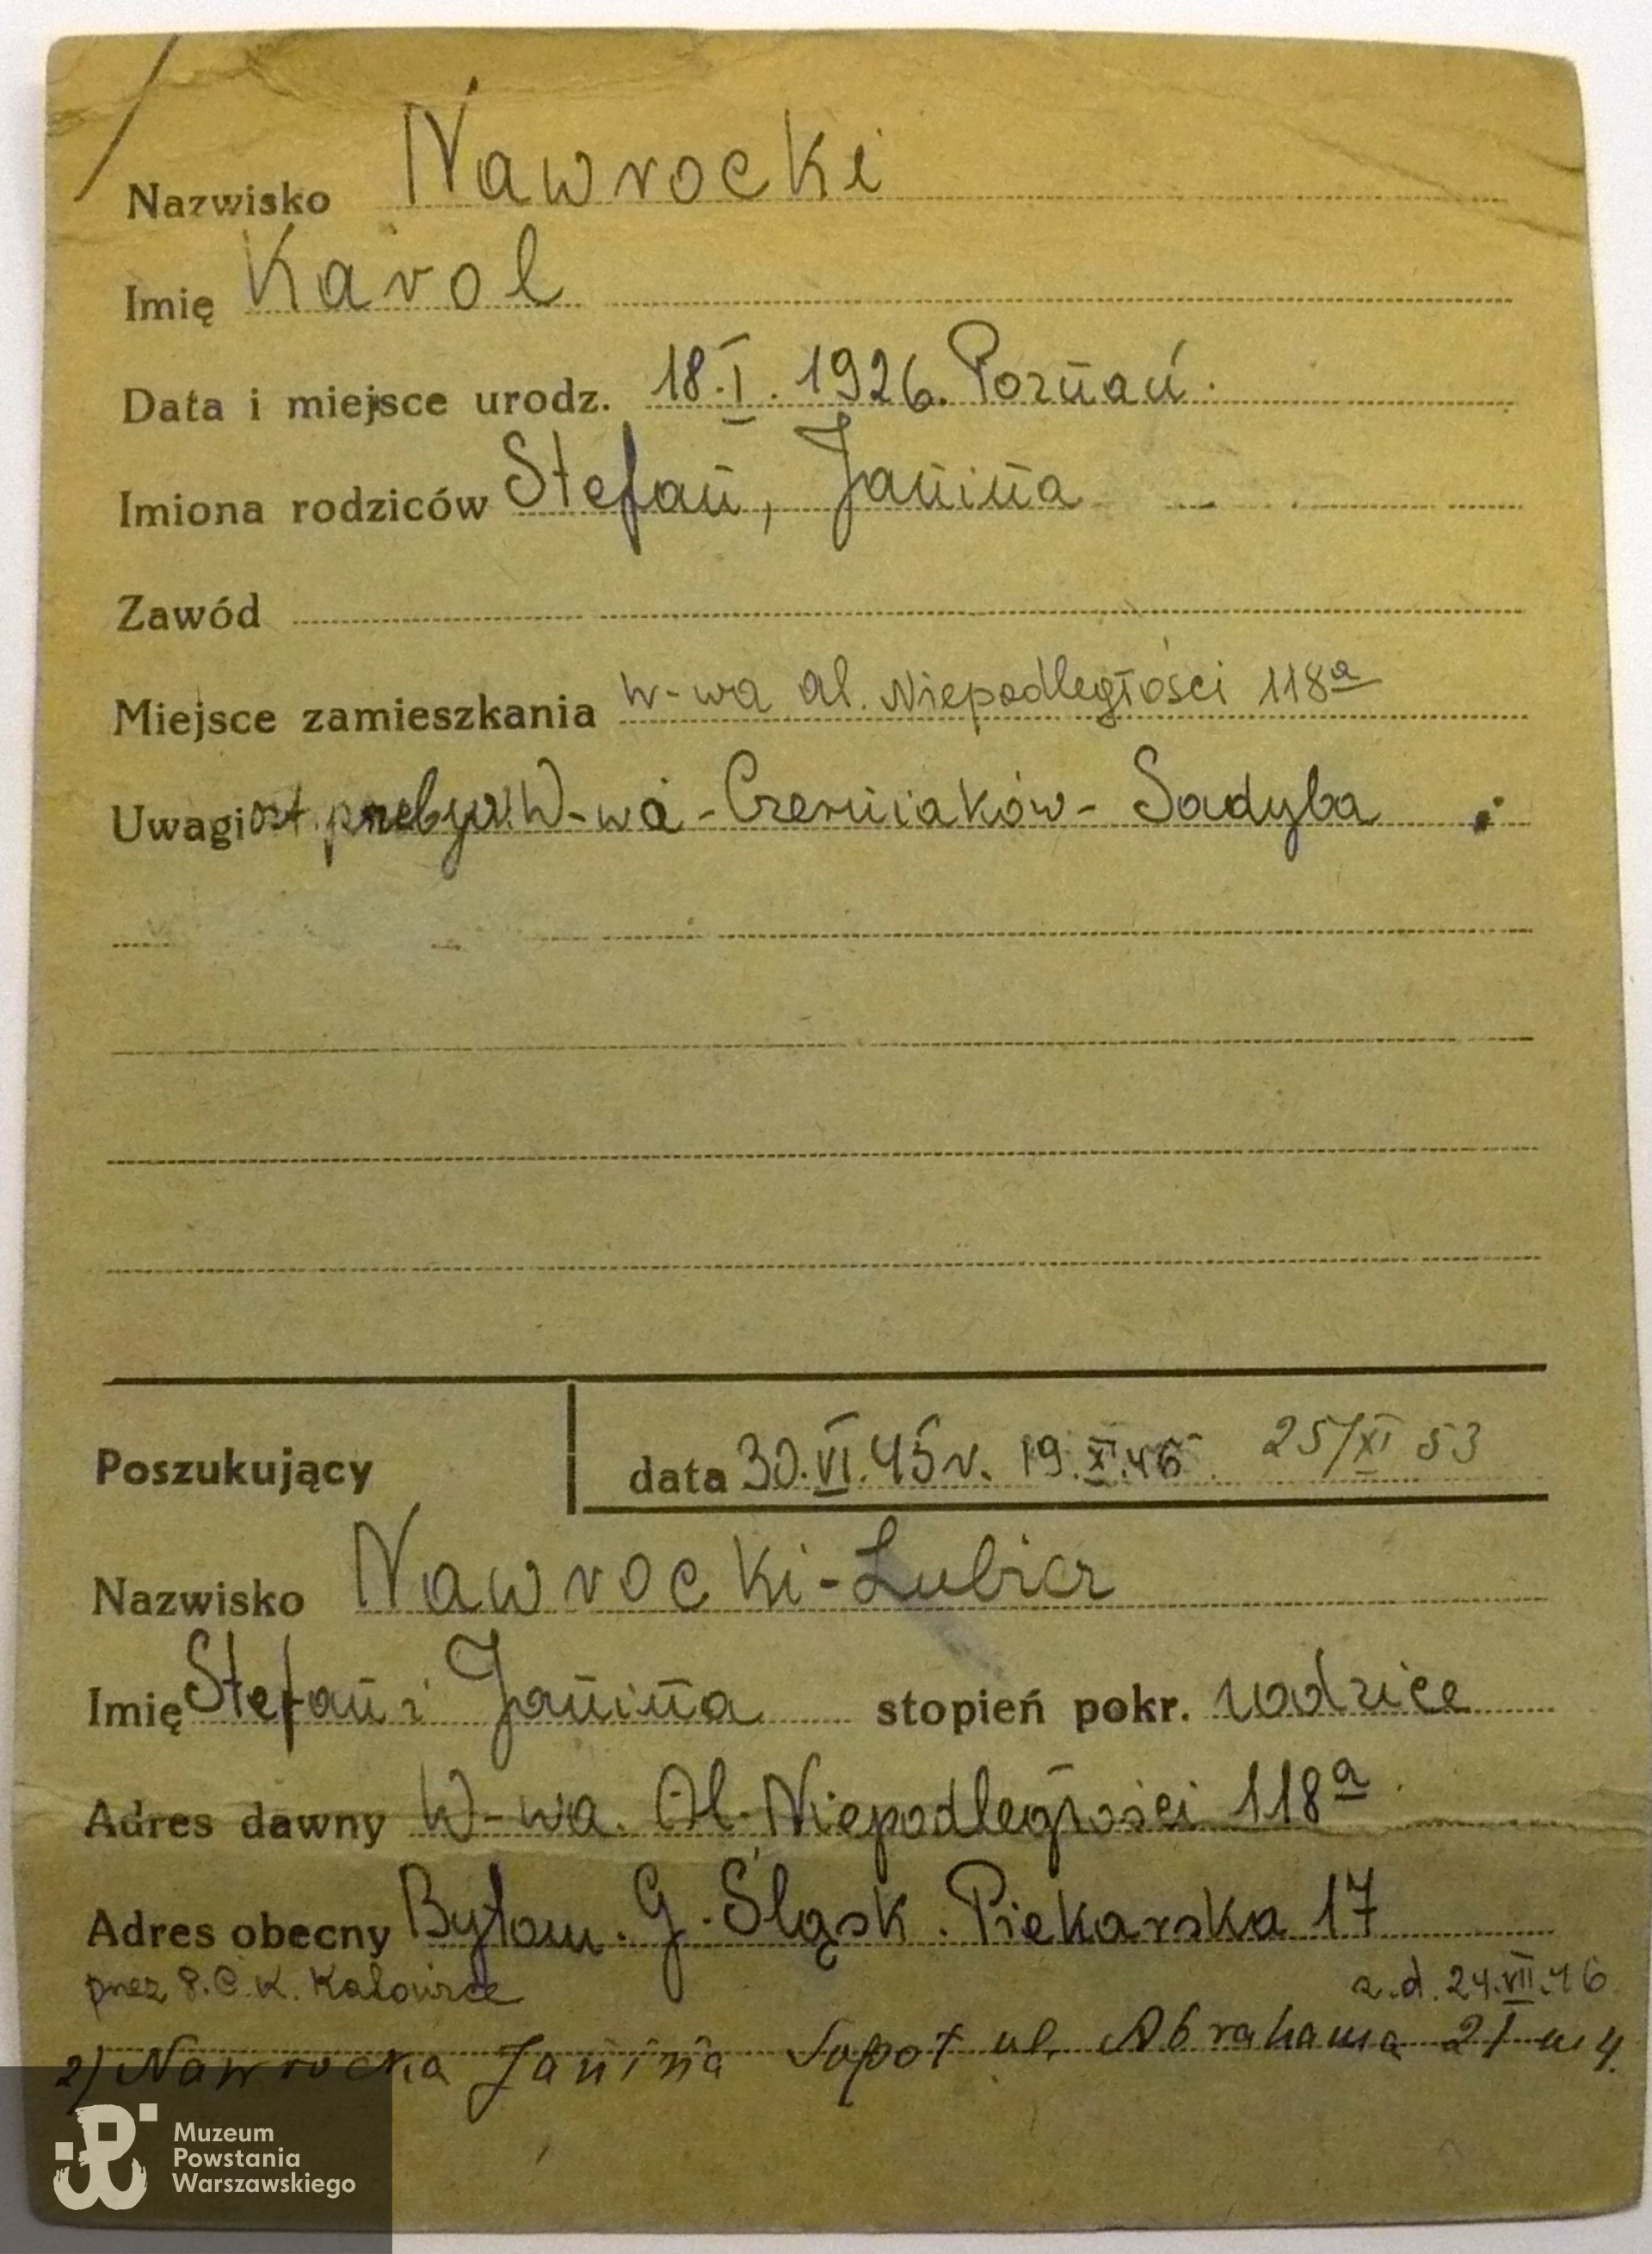 Nazwisko Nawrocki
Imię Karol
Data i miejsce urodz. 18.I.1926. Poznań.
Imiona rodziców Stefan, Janina
Zawód
Miejsce zamieszkania W-wa al. Niepodległości 118a
Uwagi ost. przebyw. W-wa - Czerniaków - Sadyba
Poszukujący data 30.VI.45r. 19.XI.46 25/XI 53
Nazwisko Nawrocki-Lubicz
Imię Stefan i Janina stopień pokr. rodzice
Adres dawny W-wa. Al. Niepodległości 118a
Adres obecny Bytom. G. Śląsk. Piekarska 17
przez P.C.K. Katowice z.d. 24.VII.46
2) Nawrocka Janina Sopot ul. Abrahama 21 m 4.
Muzeum
Powstania
Warszawskiego